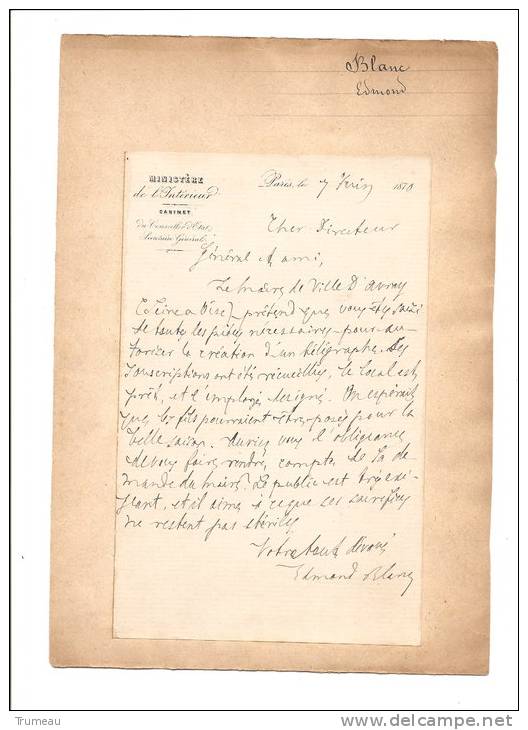 Blanc
Edmond
MINISTÈRE
de l'Intérieur
CABINET
du Conseiller d'Etat,
Secrétaire Général.
Paris, le 7 Juin 1870
Cher Directeur
Général et ami,
Le Maire de Ville D'avray
(Seine et Oise) prétend que vous êtes saisi
de toutes les pièces nécessaires pour au-
toriser la création d'un télégraphe. Les
souscriptions ont été recueillies, le local est
prêt, et l'employé désigné. On espérait
que les fils pourraient être posés pour la
belle saison. auriez vous l'obligeance
de vous faire rendre compte de la de-
mande du maire. Le public est très exi-
geant, et il aime à ce que ses sacrifices
ne restent pas stériles
Votre tout dévoué
Edmond Blanc
Trumeau
www.delcampe.net